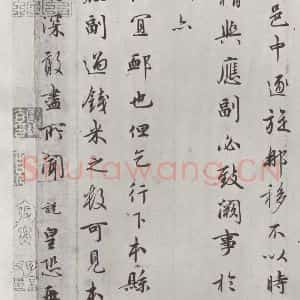 邑中逐旋那移不以時
精與應副必致闕事於
宜邮也但乞行下本縣
副過錢米之數可見本
深敢盡所聞說皇恐再
Shufawang.CN